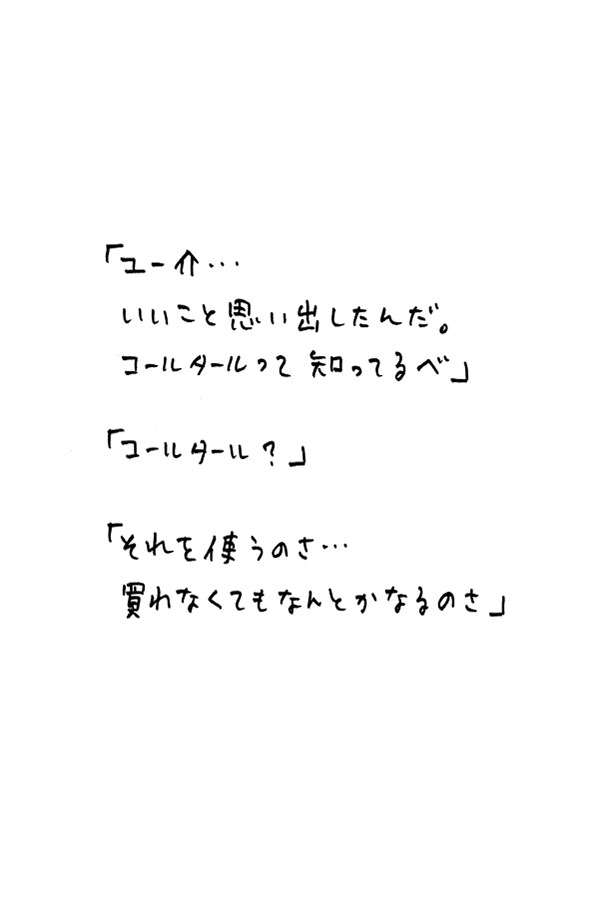 「ユー介…
いいこと思い出したんだ。
コールタールって知ってるべ」
「コールタール?」
「それを使うのさ…
買わなくてもなんとかなるのさ」